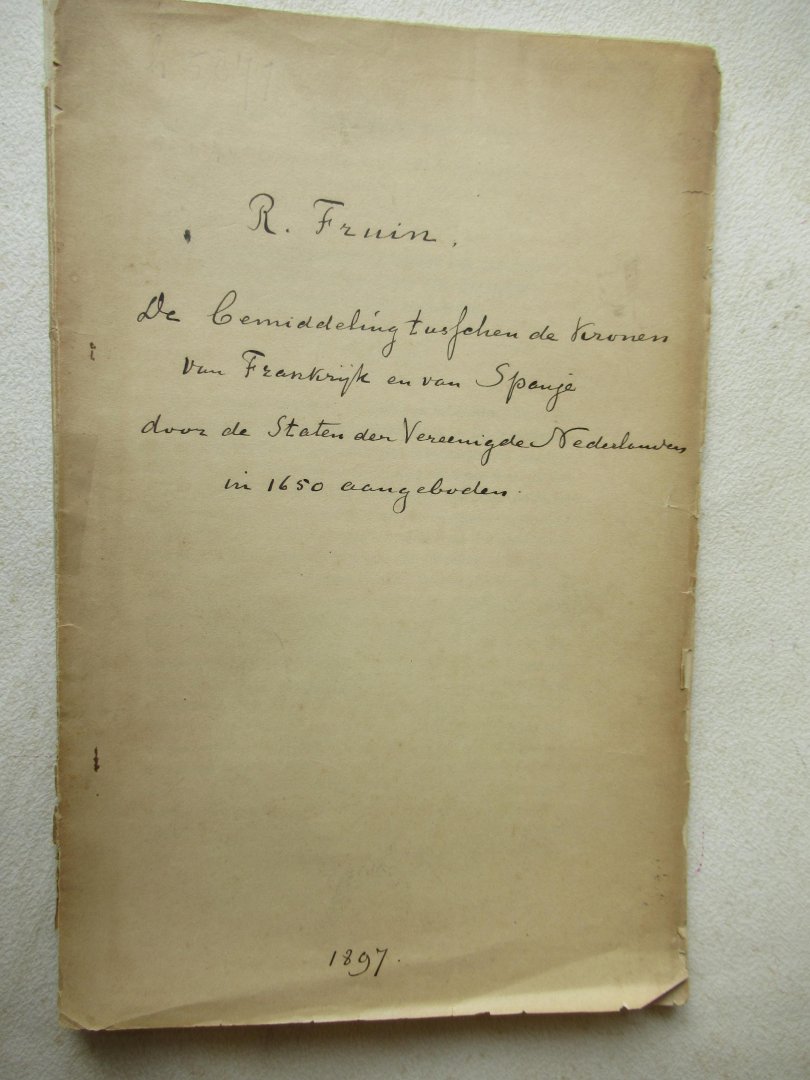 R. Fruin.
De bemiddeling tusschen de Kronen
van Frankrijk en van Spanje
door de Staten der Vereenigde Nederlanden
in 1650 aangeboden.
1897.